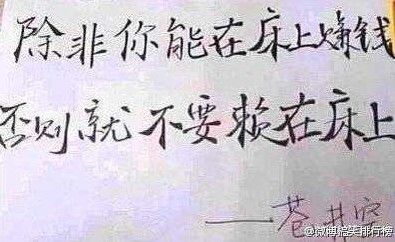 除非你能在床上赚钱
否则就不要赖在床上
——苍井空
@微博搞笑排行榜